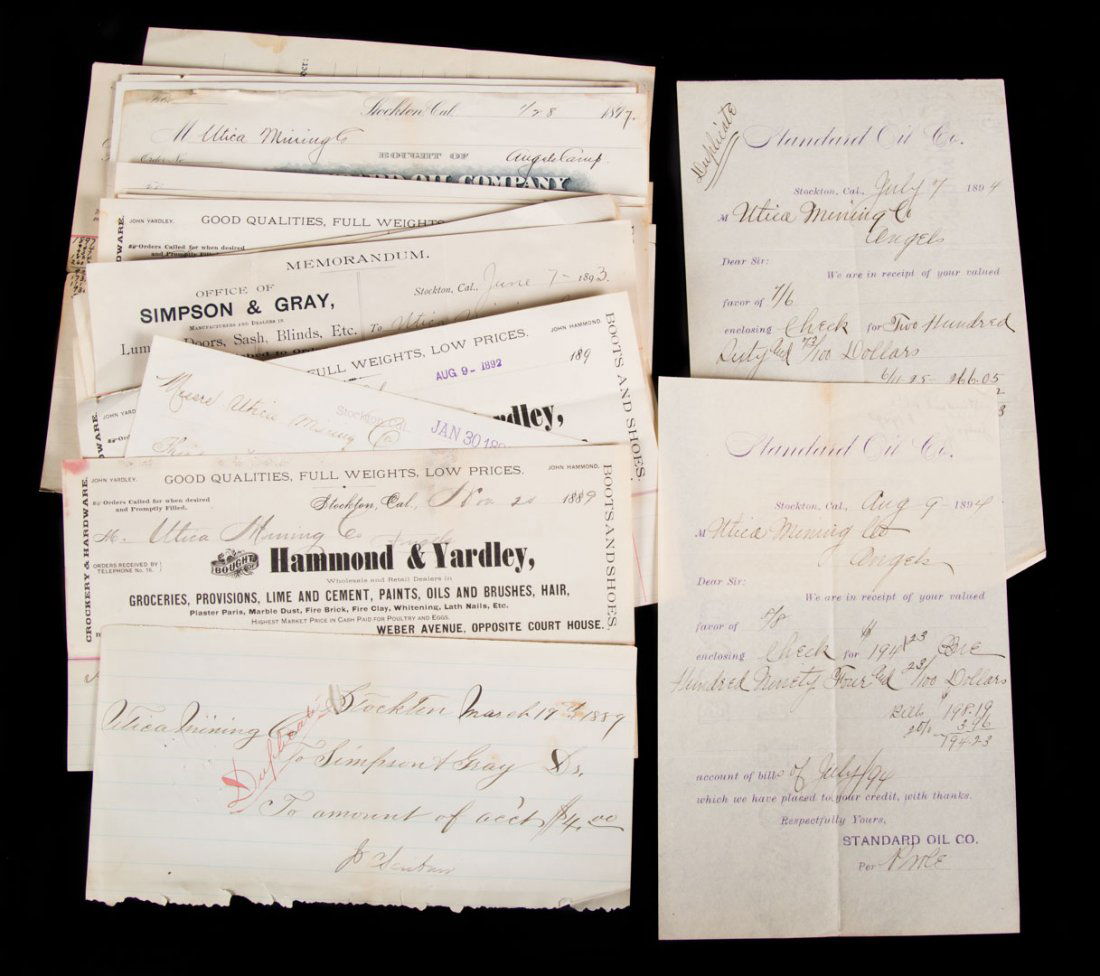 Stockton Cal. 1/28 1897.
M Utica Mining Co
BOUGHT OF Angels Camp
OIL COMPANY
JOHN YARDLEY. GOOD QUALITIES, FULL WEIGHTS,
Orders Called for when desired
and Promptly Filled
MEMORANDUM.
OFFICE OF
SIMPSON & GRAY,
Stockton, Cal., June 7- 1893.
MANUFACTURERS AND DEALERS IN
Doors, Sash, Blinds, Etc. To Utica
FULL WEIGHTS, LOW PRICES. JOHN HAMMOND.
AUG 9- 1892 189
BOOTS AND SHOES,
JOHN YARDLEY.
Utica Mining Co
Stockton Cal.
JAN 30
GOOD QUALITIES, FULL WEIGHTS, LOW PRICES.
JOHN YARDLEY. JOHN HAMMOND.
Orders Called for when desired
and Promptly Filled.
Stockton, Cal., Nov 20 1889
M. Utica Mining Co Angels
ORDERS RECEIVED BY
TELEPHONE No. 16.
BOUGHT OF
Hammond & Yardley,
Wholesale and Retail Dealers in
GROCERIES, PROVISIONS, LIME AND CEMENT, PAINTS, OILS AND BRUSHES, HAIR,
Plaster Paris, Marble Dust, Fire Brick, Fire Clay, Whitening, Lath Nails, Etc.
HIGHEST MARKET PRICE IN CASH PAID FOR POULTRY AND EGGS.
WEBER AVENUE, OPPOSITE COURT HOUSE.
CROCKERY & HARDWARE.
BOOTS AND SHOES,
Stockton March 19th 1889
Utica Mining Co
Duplicate
To Simpson & Gray Dr.
To amount of acct $4.00
Duplicate
Standard Oil Co.
Stockton, Cal., July 7 1894
M Utica Mining Co
Angels
Dear Sir:
We are in receipt of your valued
favor of 7/6
enclosing Check for Two Hundred
Sixty and 72/100 Dollars
266.05
Standard Oil Co.
Stockton, Cal., Aug 9 - 1894
M Utica Mining Co
Angels
Dear Sir:
We are in receipt of your valued
favor of 8/8
enclosing Check for $194 23 One
Hundred Ninety Four and 23/100 Dollars
Bill 198.19
2% 3.96
194.23
account of bills of July/94
which we have placed to your credit, with thanks.
Respectfully Yours,
STANDARD OIL CO.
Per